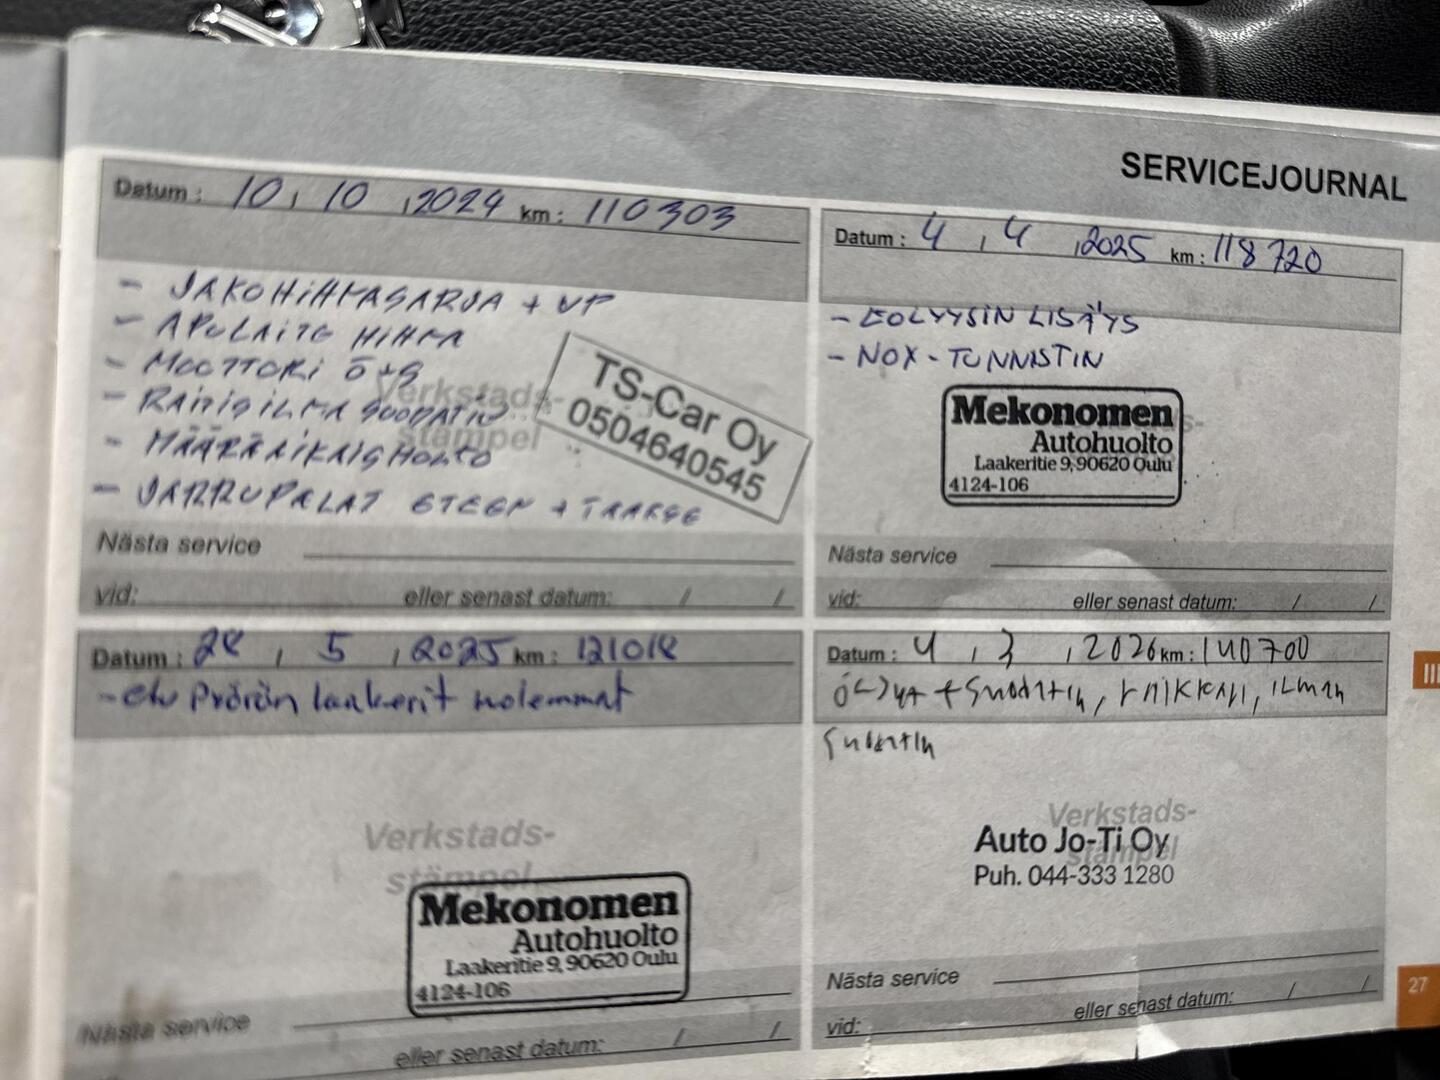 SERVICEJOURNAL
Datum : 10 , 10 , 2024 km : 110303
- JAKOHIHNASARJA + VP
- APULAITE HIHNA
- MOOTTORI Ö+S
- RAITISILMA SUODATIN
- MÄÄRÄAIKAISHUOLTO
- JARRUPALAT ETEEN + TAAKSE
Verkstads-
stämpel
TS-Car Oy
0504640545
Nästa service
vid: eller senast datum: / /
Datum : 4 , 4 , 2025 km : 118720
- EOLYYSIN LISÄYS
- NOX - TUNNISTIN
Mekonomen
Autohuolto
Laakeritie 9, 90620 Oulu
4124-106
Nästa service
vid: eller senast datum: / /
Datum : 28 , 5 , 2025 km : 121018
- etu pyörän laakerit molemmat
Verkstads-
stämpel
Mekonomen
Autohuolto
Laakeritie 9, 90620 Oulu
4124-106
Nästa service
eller senast datum: / /
Datum : 4 , 3 , 2026 km : 140700
ÖLJYT + SUODATIN, , ILMAN
SUODATIN
Verkstads-
stämpel
Auto Jo-Ti Oy
Puh. 044-333 1280
Nästa service
vid: eller senast datum: / /
III
27